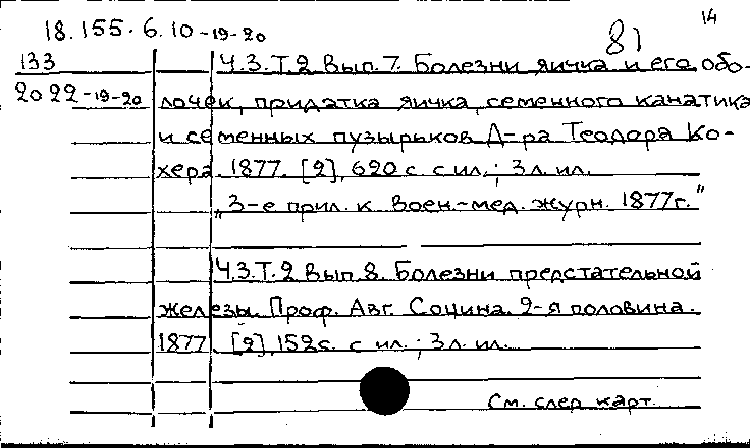 14
18.155.6.10-19-20
81
133
2022-19-20
Ч.3.Т.2 Вып.7. Болезни яичка и его обо-
лочек, придатка яичка, семенного канатика
и семенных пузырьков Д-ра Теодора Ко-
хера. 1877. [2], 620 с. с ил.; 3 л. ил.
„3-е прил. к Воен.-мед. журн. 1877г."
Ч.3.Т.2 Вып 8. Болезни предстательной
железы. Проф. Авг. Социна. 2-я половина.
1877. [2], 152с. с ил.; 3 л. ил.
См. след карт.